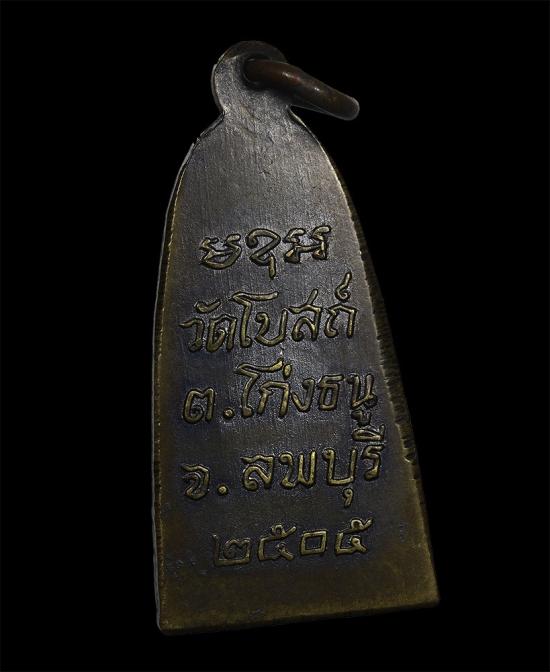 วัดโบสถ์
ต.โก่งธนู
จ.ลพบุรี
๒๕๐๕